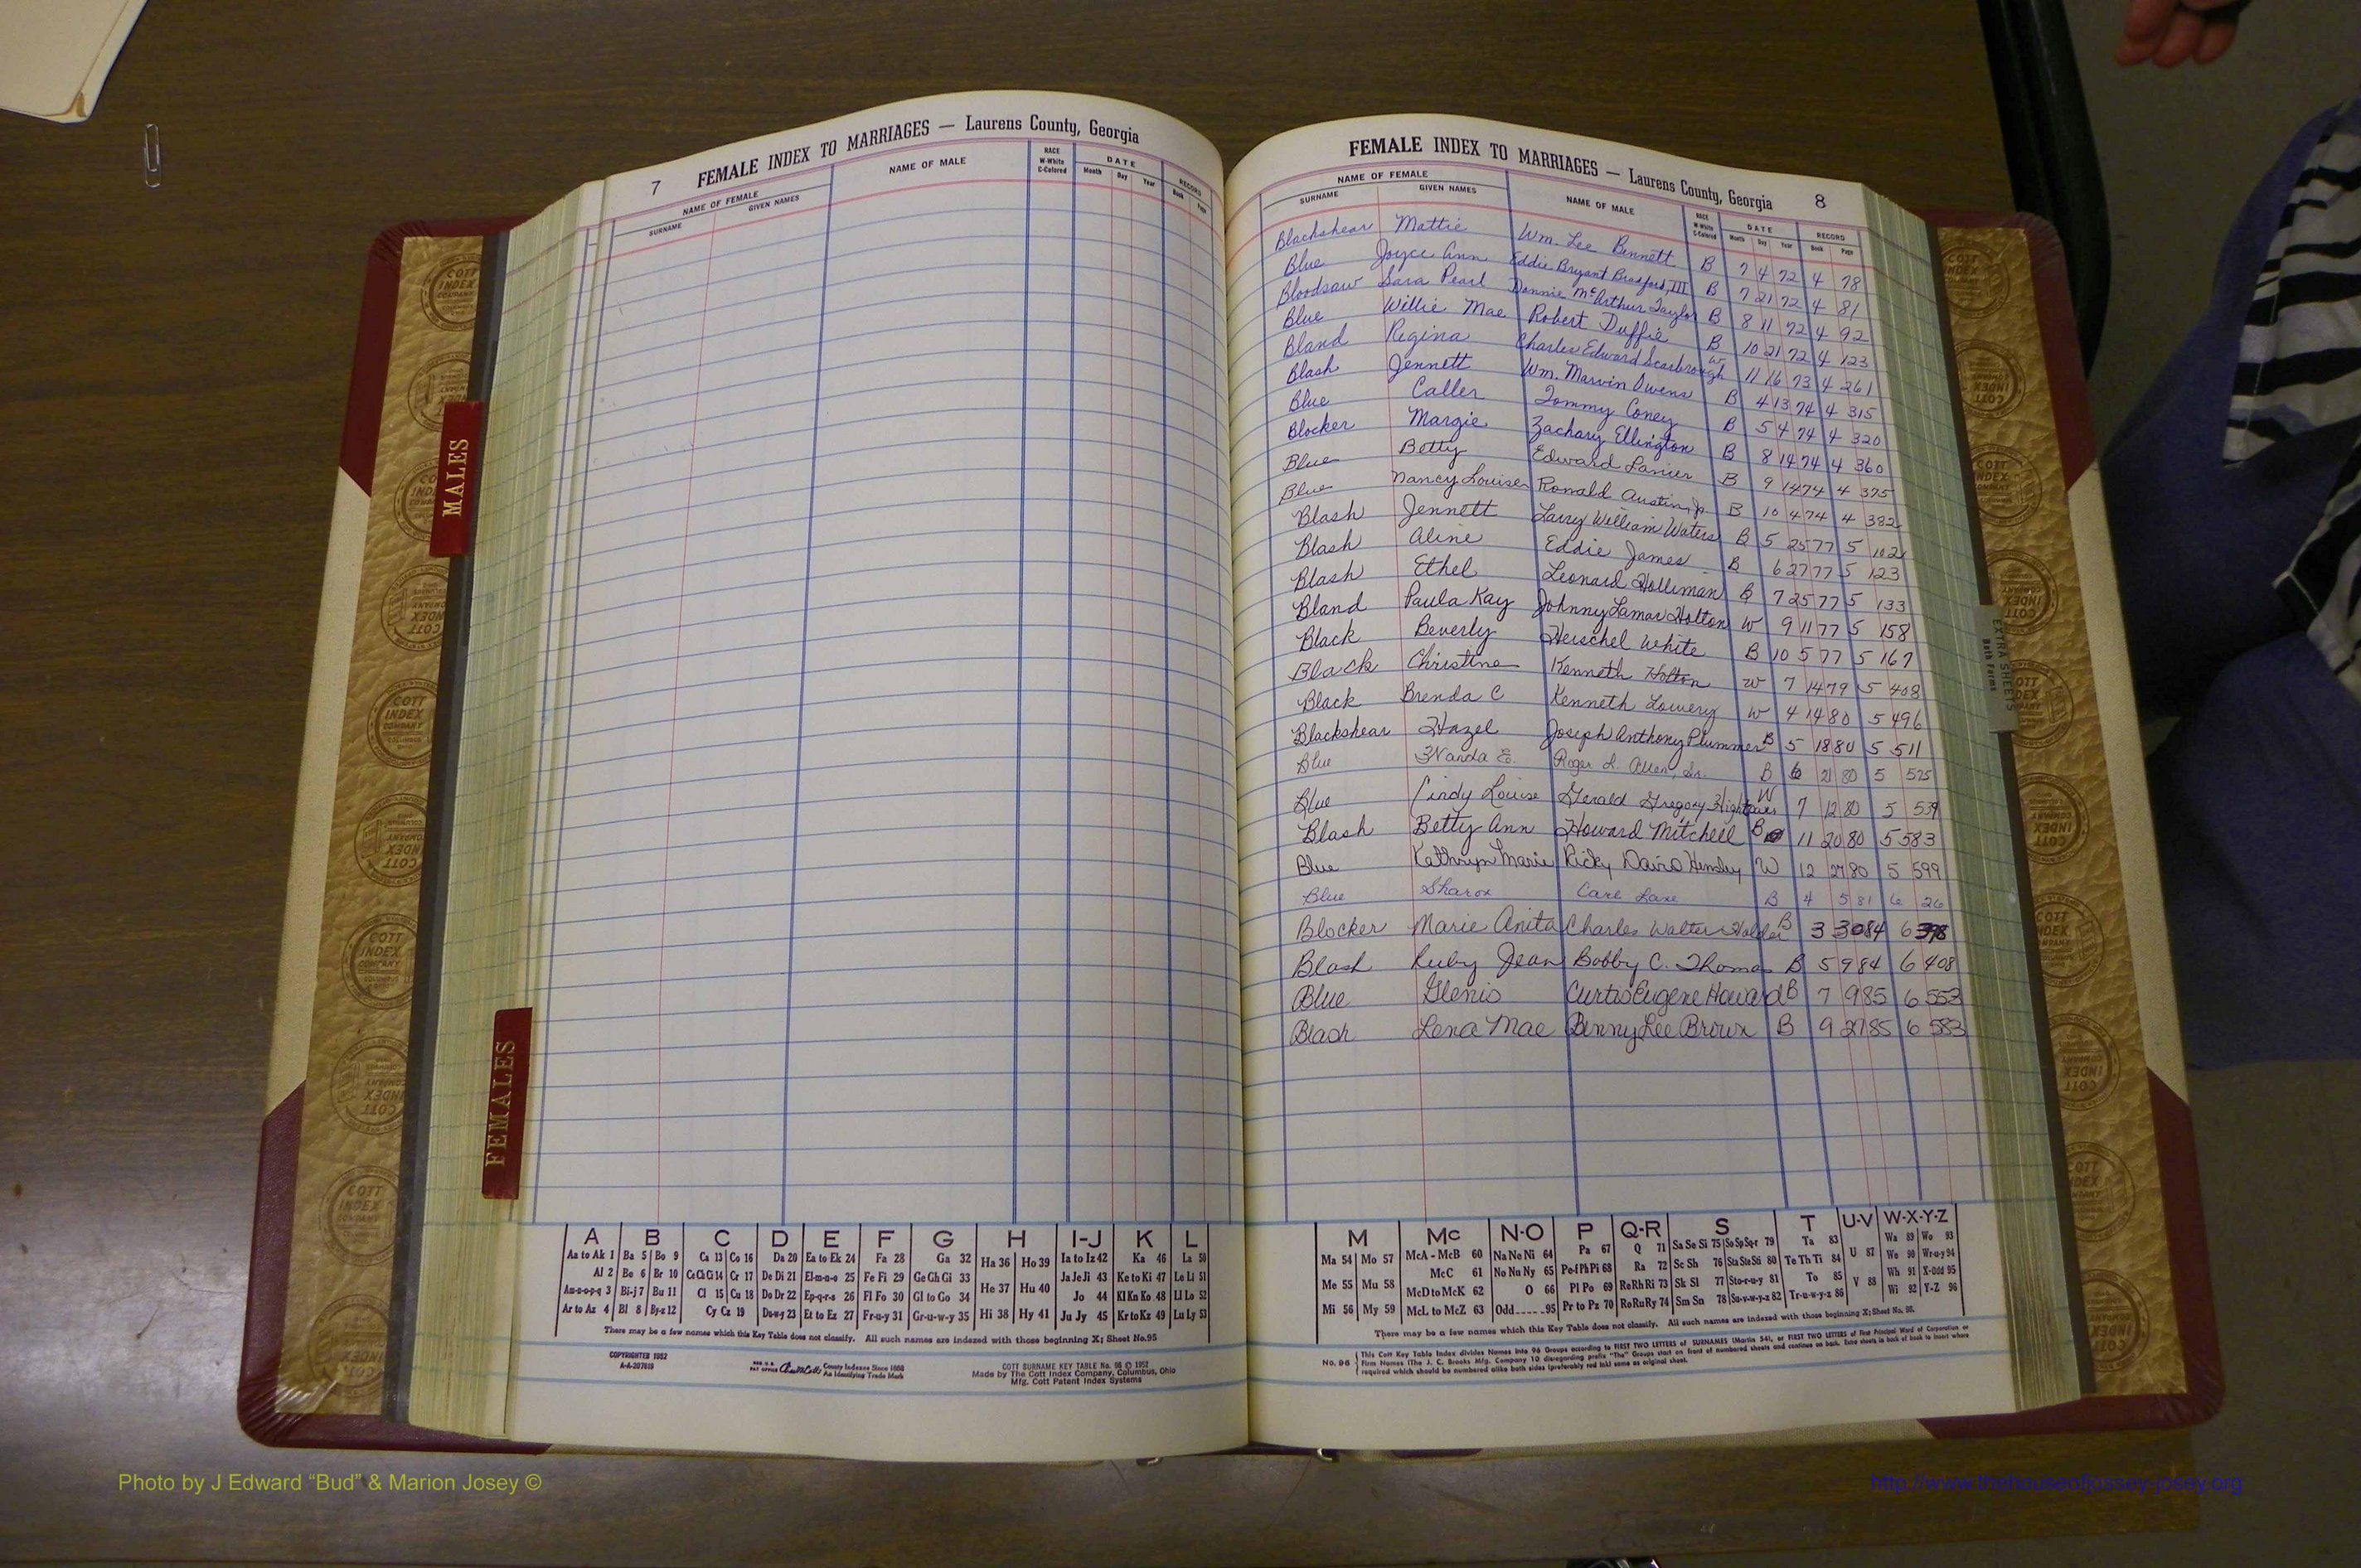 7 FEMALE INDEX TO MARRIAGES — Laurens County, Georgia
NAME OF FEMALE NAME OF MALE RACE W-White C-Colored DATE RECORD
SURNAME GIVEN NAMES Month Day Year Book Page
MALES
FEMALES
FEMALE INDEX TO MARRIAGES — Laurens County, Georgia 8
NAME OF FEMALE NAME OF MALE RACE W-White C-Colored DATE RECORD
SURNAME GIVEN NAMES Month Day Year Book Page
Blackshear Mattie Wm. Lee Bennett B 7 4 72 4 78
Blue Joyce Ann Eddie Bryant Bradford, III B 7 21 72 4 81
Bloodsaw Sara Pearl Donnie McArthur Taylor B 8 11 72 4 92
Blue Willie Mae Robert Duffie B 10 21 72 4 123
Bland Regina Charles Edward Scarbrough W 11 16 73 4 261
Blash Jennett Wm. Marvin Owens B 4 13 74 4 315
Blue Caller Tommy Coney B 5 4 74 4 320
Blocker Margie Zachary Ellington B 8 14 74 4 360
Blue Betty Edward Lanier B 9 14 74 4 375
Blue Nancy Louise Ronald Austin, Jr B 10 4 74 4 382
Blash Jennett Larry William Waters B 5 25 77 5 102
Blash Aline Eddie James B 6 27 77 5 123
Blash Ethel Leonard Holliman B 7 25 77 5 133
Bland Paula Kay Johnny Lamar Holton W 9 11 77 5 158
Black Beverly Herschel White B 10 5 77 5 167
Black Christine Kenneth Holton W 7 14 79 5 408
Black Brenda C Kenneth Lowery W 4 14 80 5 496
Blackshear Hazel Joseph Anthony Plummer B 5 18 80 5 511
Blue Wanda E. Roger L. Allen, Sr. B 6 21 80 5 525
Blue Cindy Louise Gerald Gregory W 7 12 80 5 539
Blash Betty Ann Howard Mitchell B 11 20 80 5 583
Blue Kathryn Marie Ricky David Hensley W 12 27 80 5 599
Blue Sharon Carl Lane B 4 5 81 6 26
Blocker Marie Anita Charles Walter Holder B 3 30 84 6 398
Blash Ruby Jean Bobby C. Thomas B 5 9 84 6 408
Blue Glenis Curtis Eugene Howard B 7 9 85 6 553
Blash Lena Mae Benny Lee Brown B 9 27 85 6 583
EXTRA SHEETS
Both Forms
A B C D E F G H I-J K L
Aa to Ak 1 Ba 5 Bo 9 Ca 13 Co 16 Da 20 Ea to Ek 24 Fa 28 Ga 32 Ha 36 Ho 39 Ia to Iz 42 Ka 46 La 50
Al 2 Be 6 Br 10 Ce Ch Ci 14 Cr 17 De Di 21 El-m-n-o 25 Fe Fi 29 Ge Gh Gi 33 He 37 Hu 40 Ja Je Ji 43 Ke to Ki 47 Le Li 51
Am-n-o-p-q 3 Bi-j 7 Bu 11 Cl 15 Cu 18 Do Dr 22 Ep-q-r-s 26 Fl Fo 30 Gl to Go 34 Jo 44 Kl Kn Ko 48 Ll Lo 52
Ar to Az 4 Bl 8 By-z 12 Cy Cz 19 Du-w-y 23 Et to Ez 27 Fr-u-y 31 Gr-u-w-y 35 Hi 38 Hy 41 Ju Jy 45 Kr to Kz 49 Lu Ly 53
There may be a few names which this Key Table does not classify. All such names are indexed with those beginning X; Sheet No.95
COPYRIGHTED 1952
A-A-207619
County Indexes Since 1888
An Identifying Trade Mark
COTT SURNAME KEY TABLE No. 96 © 1952
Made by The Cott Index Company, Columbus, Ohio
Mfg. Cott Patent Index Systems
M Mc N-O P Q-R S T U-V W-X-Y-Z
Ma 54 Mo 57 McA - McB 60 Na Ne Ni 64 Pa 67 Q 71 Sa Se Si 75 So Sp Sq-r 79 Ta 83 U 87 Wa 89 Wo 93
Me 55 Mu 58 McC 61 No Nu Ny 65 Pe-f Ph Pi 68 Ra 72 Sc Sh 76 Sta Ste Sti 80 Te Th Ti 84 We 90 Wr-u-y 94
McD to McK 62 O 66 Pl Po 69 Re Rh Ri 73 Sk Sl 77 Sto-r-u-y 81 To 85 V 88 Wh 91 X-Odd 95
Mi 56 My 59 McL to McZ 63 Odd-----95 Pr to Pz 70 Ro Ru Ry 74 Sm Sn 78 Su-v-w-y-z 82 Tr-u-w-y-z 86 Wi 92 Y-Z 96
There may be a few names which this Key Table does not classify. All such names are indexed with those beginning X; Sheet No. 95.
No. 96 This Cott Key Table Index divides Names into 96 Groups according to FIRST TWO LETTERS of SURNAMES (Martin 54), or FIRST TWO LETTERS of First Principal Word of Corporation or
Firm Names (The J. C. Brooks Mfg. Company 10 disregarding prefix "The") Groups start on front of numbered sheets and continue on back. Extra sheets in back of book to insert where
required which should be numbered alike both sides (preferably red ink) same as original sheet.
Photo by J Edward “Bud” & Marion Josey ©
http://www.thehouseofjossey-josey.org